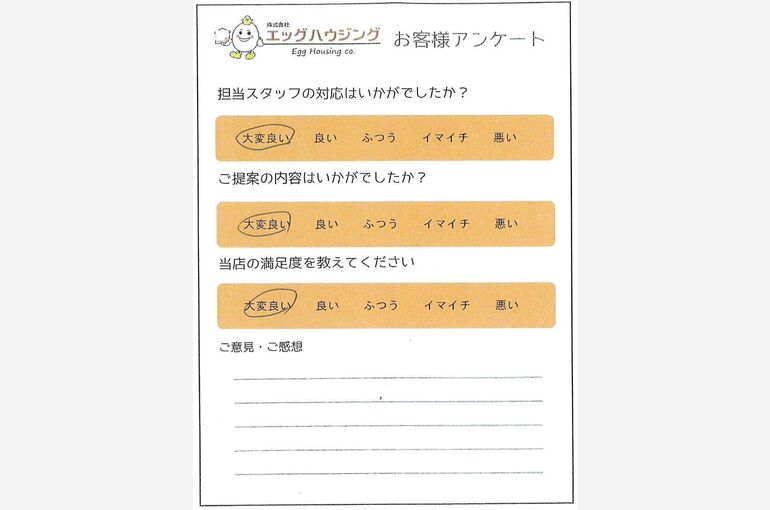 株式会社
エッグハウジング
Egg Housing co.
お客様アンケート
担当スタッフの対応はいかがでしたか？
大変良い 良い ふつう イマイチ 悪い
ご提案の内容はいかがでしたか？
大変良い 良い ふつう イマイチ 悪い
当店の満足度を教えてください
大変良い 良い ふつう イマイチ 悪い
ご意見・ご感想